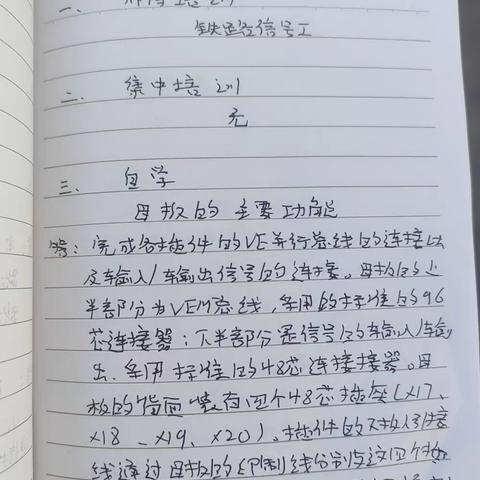 一、 培训
铁路信号工
二、 集中培训
无
三、 自学
母板的主要功能
答：完成各插件的VE并行总线的连接以
及输入/输出信号的连接。母板的上
半部分为VEM总线，采用的标准的96
芯连接器；下半部分是信号的输入/输
出，采用标准的48芯连接接器。母
板的背面装有四个48芯插座（X17、
X18、X19、X20）。插件的对外引接
线通过母板的印制线分别与这四个